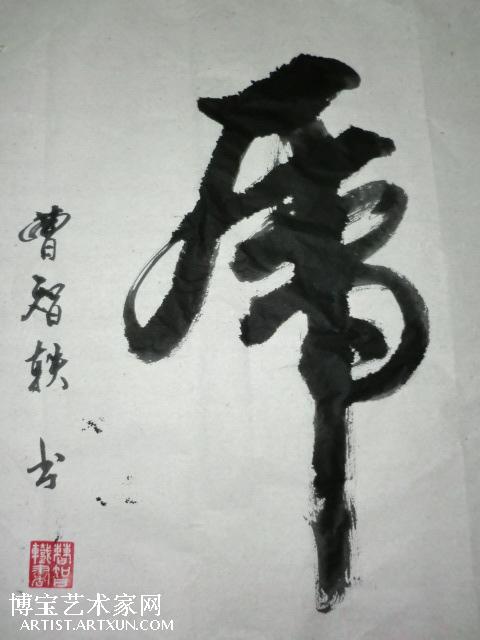 虎
曹智轶 书
博宝艺术家网
ARTIST.ARTXUN.COM